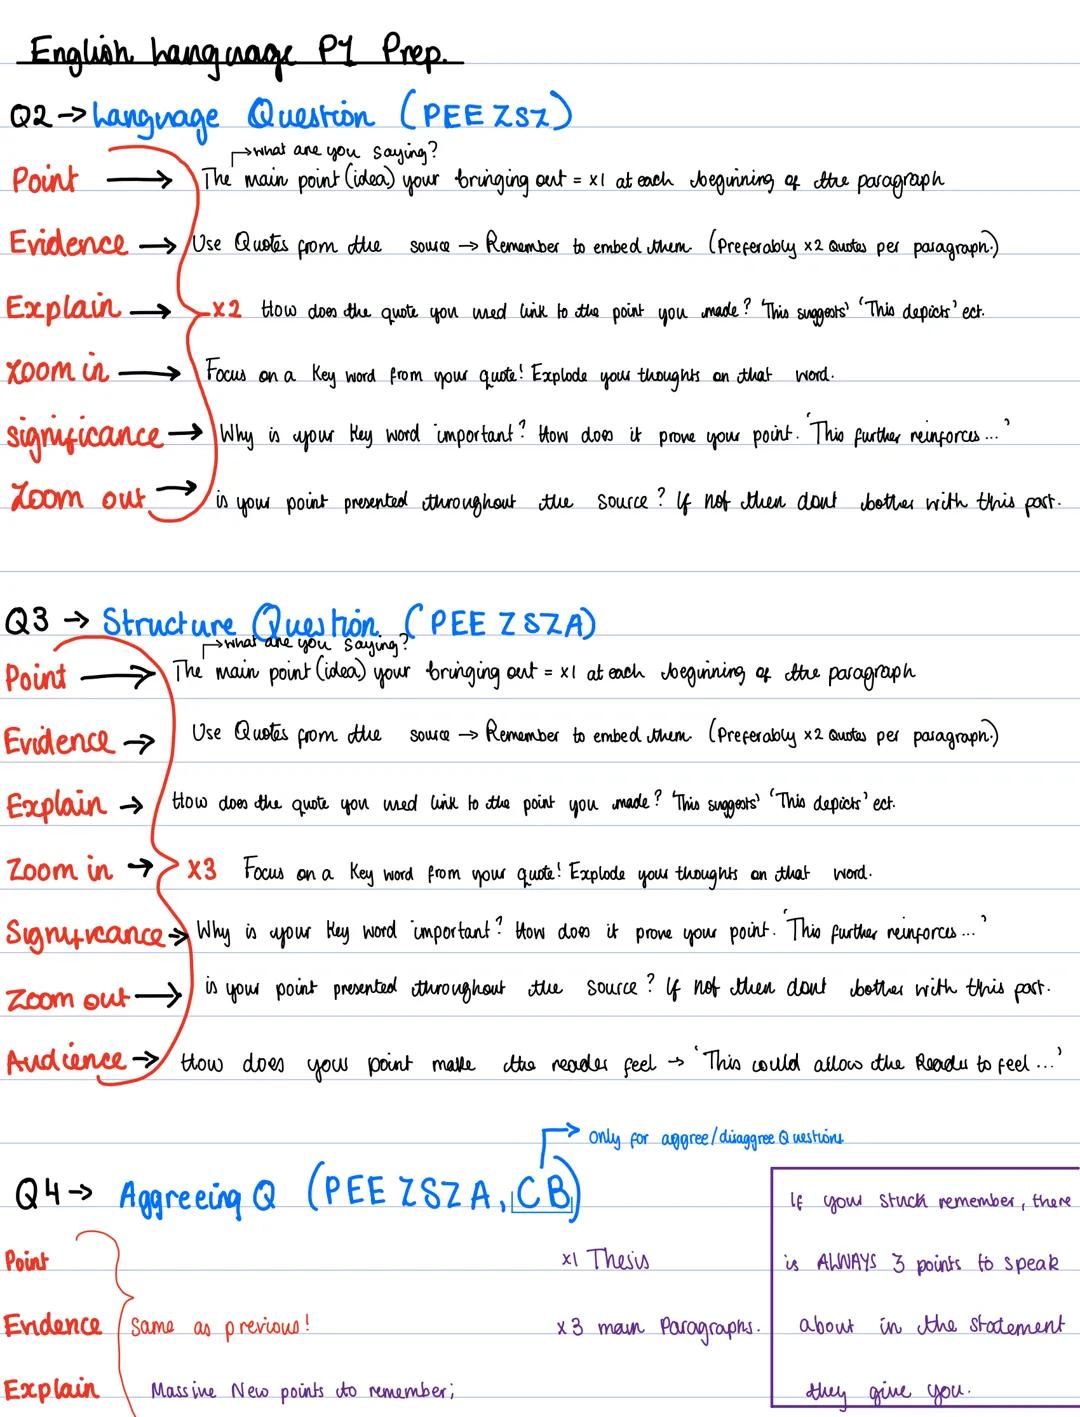 English Language P1 Prep.
Q2 → Language Question (PEE ZSZ)
↱what are you saying?
Point → The main point (idea) your bringing out = x1 at each beginning of the paragraph
Evidence → Use Quotes from the source → Remember to embed them (Preferably x2 Quotes per paragraph.)
Explain → x2 How does the quote you used link to the point you made? 'This suggests' 'This depicts' ect.
Zoom in → Focus on a Key word from your quote! Explode your thoughts on that word.
significance → Why is your key word important? How does it prove your point. 'This further reinforces...'
Zoom out → is your point presented throughout the source? If not then dont bother with this part.
Q3 → Structure Question (PEE ZSZA)
↱what are you saying?
Point → The main point (idea) your bringing out = x1 at each beginning of the paragraph
Evidence → Use Quotes from the source → Remember to embed them (Preferably x2 Quotes per paragraph.)
Explain → How does the quote you used link to the point you made? 'This suggests' 'This depicts' ect.
Zoom in → x3 Focus on a Key word from your quote! Explode your thoughts on that word.
Significance → Why is your key word important? How does it prove your point. 'This further reinforces...'
Zoom out → is your point presented throughout the source? If not then dont bother with this part.
Audience → How does your point make the reader feel → 'This could allow the Reader to feel...'
→ only for aggree/disaggree Questions
Q4 → Aggreeing Q (PEE ZSZA, CB)
Point
Evidence Same as previous!
Explain Massive New points to remember;
x1 Thesis
x3 main Paragraphs.
If your stuck remember, there
is ALWAYS 3 points to speak
about in the statement
they give you.